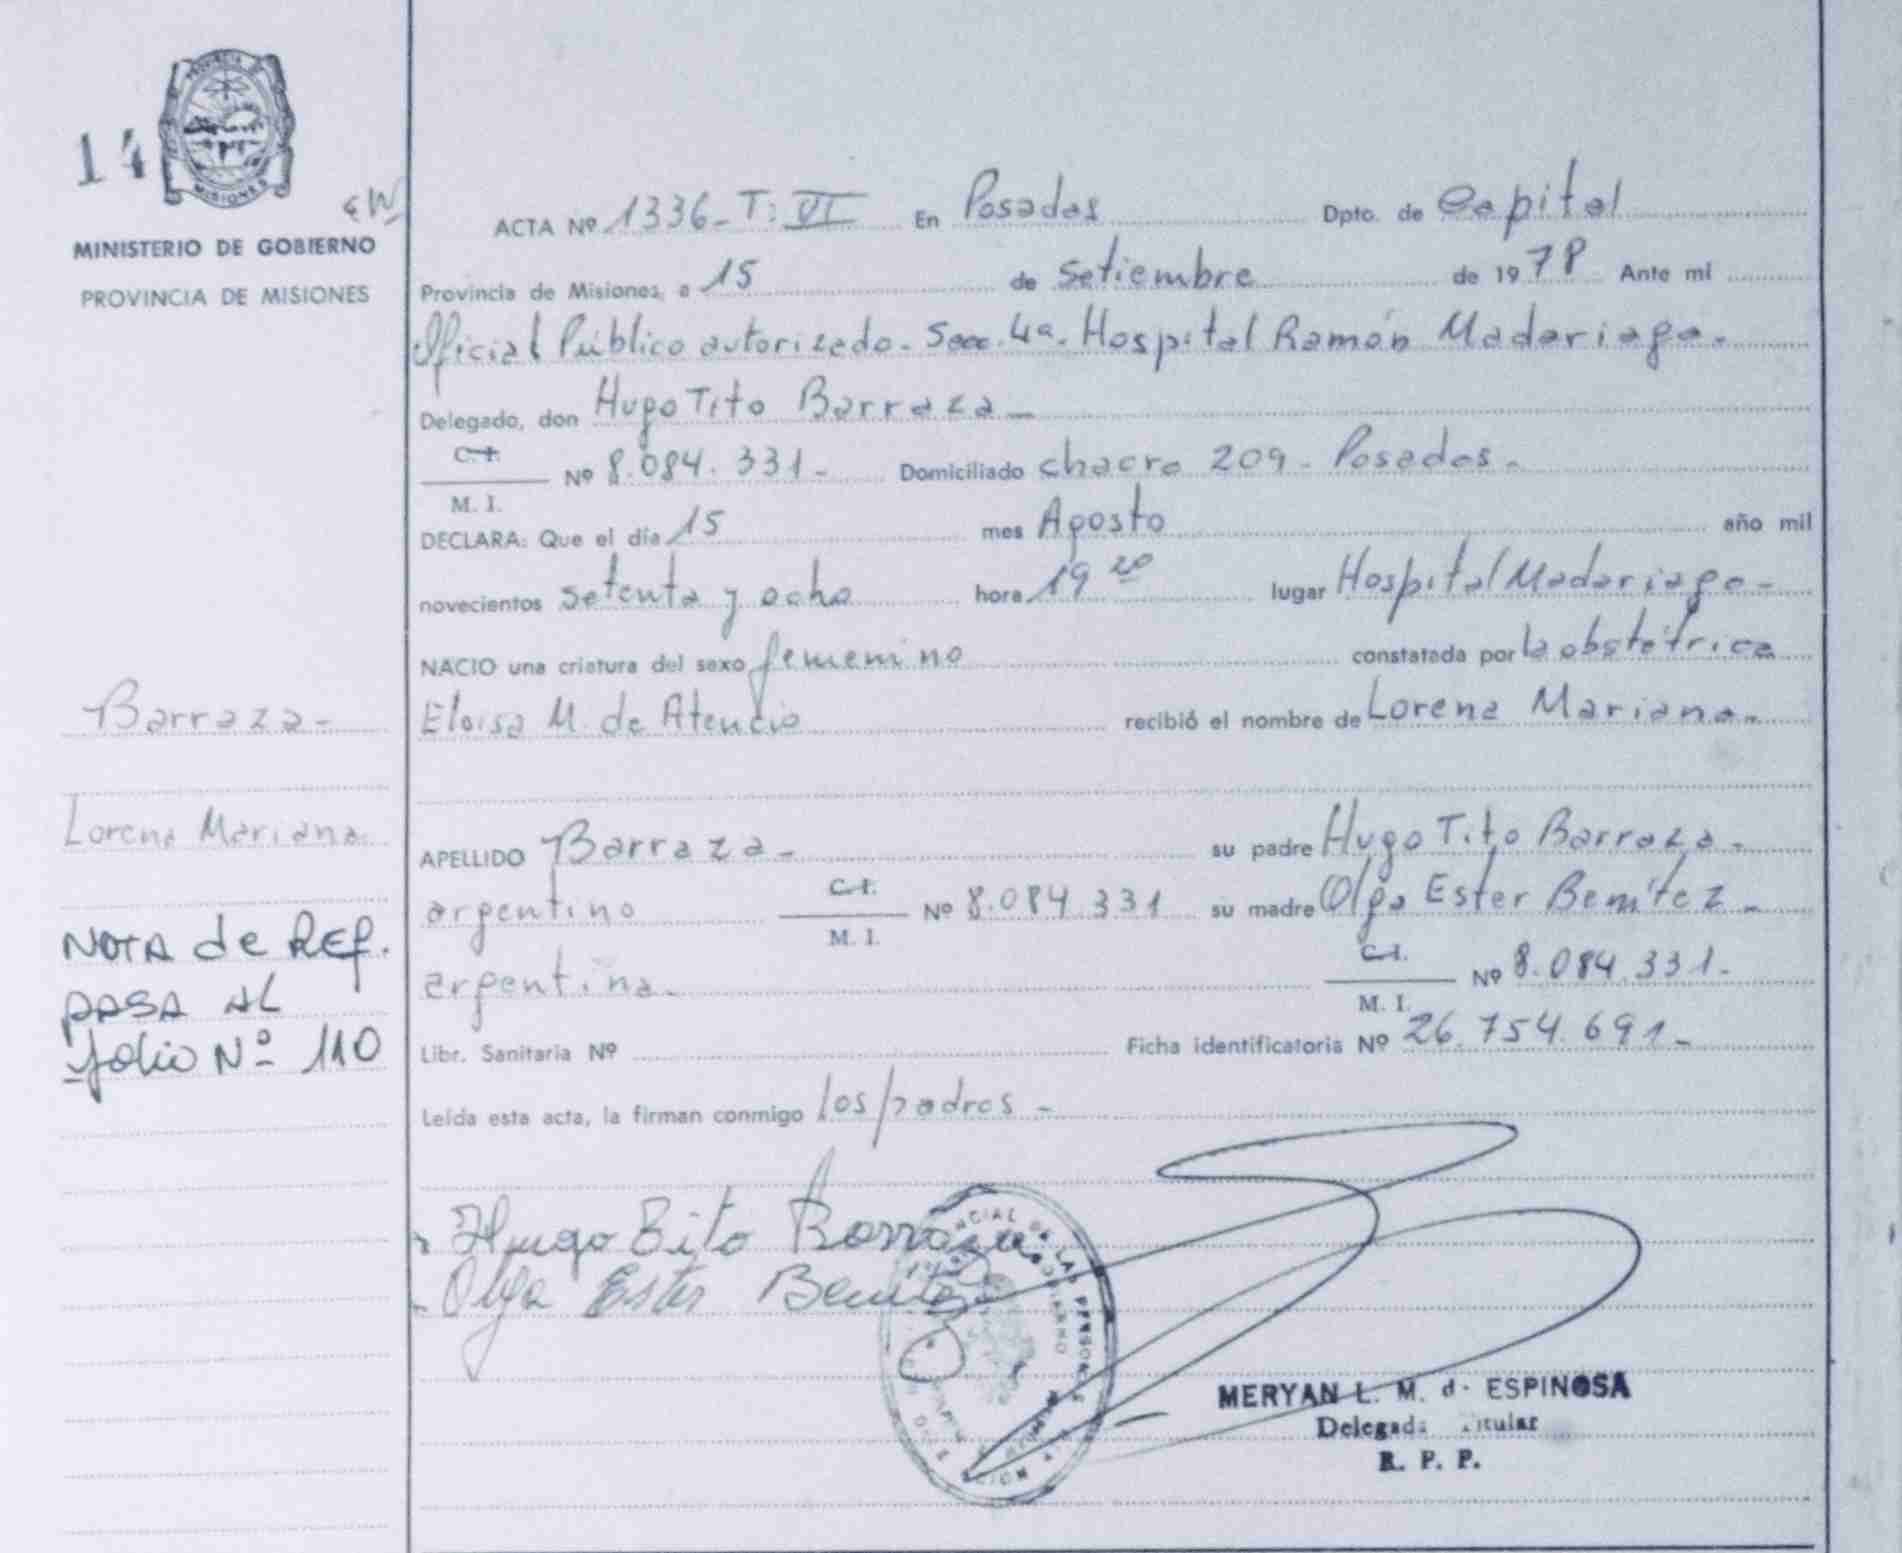 14
PROVINCIA DE
MISIONES
MINISTERIO DE GOBIERNO
PROVINCIA DE MISIONES
ACTA Nº 1336-T: VI En Posadas Dpto. de Capital
Provincia de Misiones, a 15 de Setiembre de 1978 Ante mi
Oficial Público autorizado. Secc. 4a. Hospital Ramón Madariaga-
Delegado, don Hugo Tito Barraza-
C. I.
M. I.
Nº 8.084.331- Domiciliado chacra 209- Posadas-
DECLARA: Que el día 15 mes Agosto año mil
novecientos setenta y ocho hora 19 20 lugar Hospital Madariaga-
NACIO una criatura del sexo femenino constatada por la obstétrica
Eloisa M. de Atencio recibió el nombre de Lorena Mariana-
APELLIDO Barraza- su padre Hugo Tito Barraza-
argentino C. I. M. I. Nº 8.084.331 su madre Olga Ester Benítez-
argentina- C. I. M. I. Nº 8.084.331-
Libr. Sanitaria Nº Ficha identificatoria Nº 26.754.691-
Leída esta acta, la firman conmigo los padres-
Barraza-
Lorena Mariana
NOTA de REF.
PASA AL
folio Nº 110
Hugo Tito Barraza
Olga Ester Benitez
DE LAS PERSONAS
MERYAN L. M. d. ESPINOSA
Delegada Titular
R. P. P.